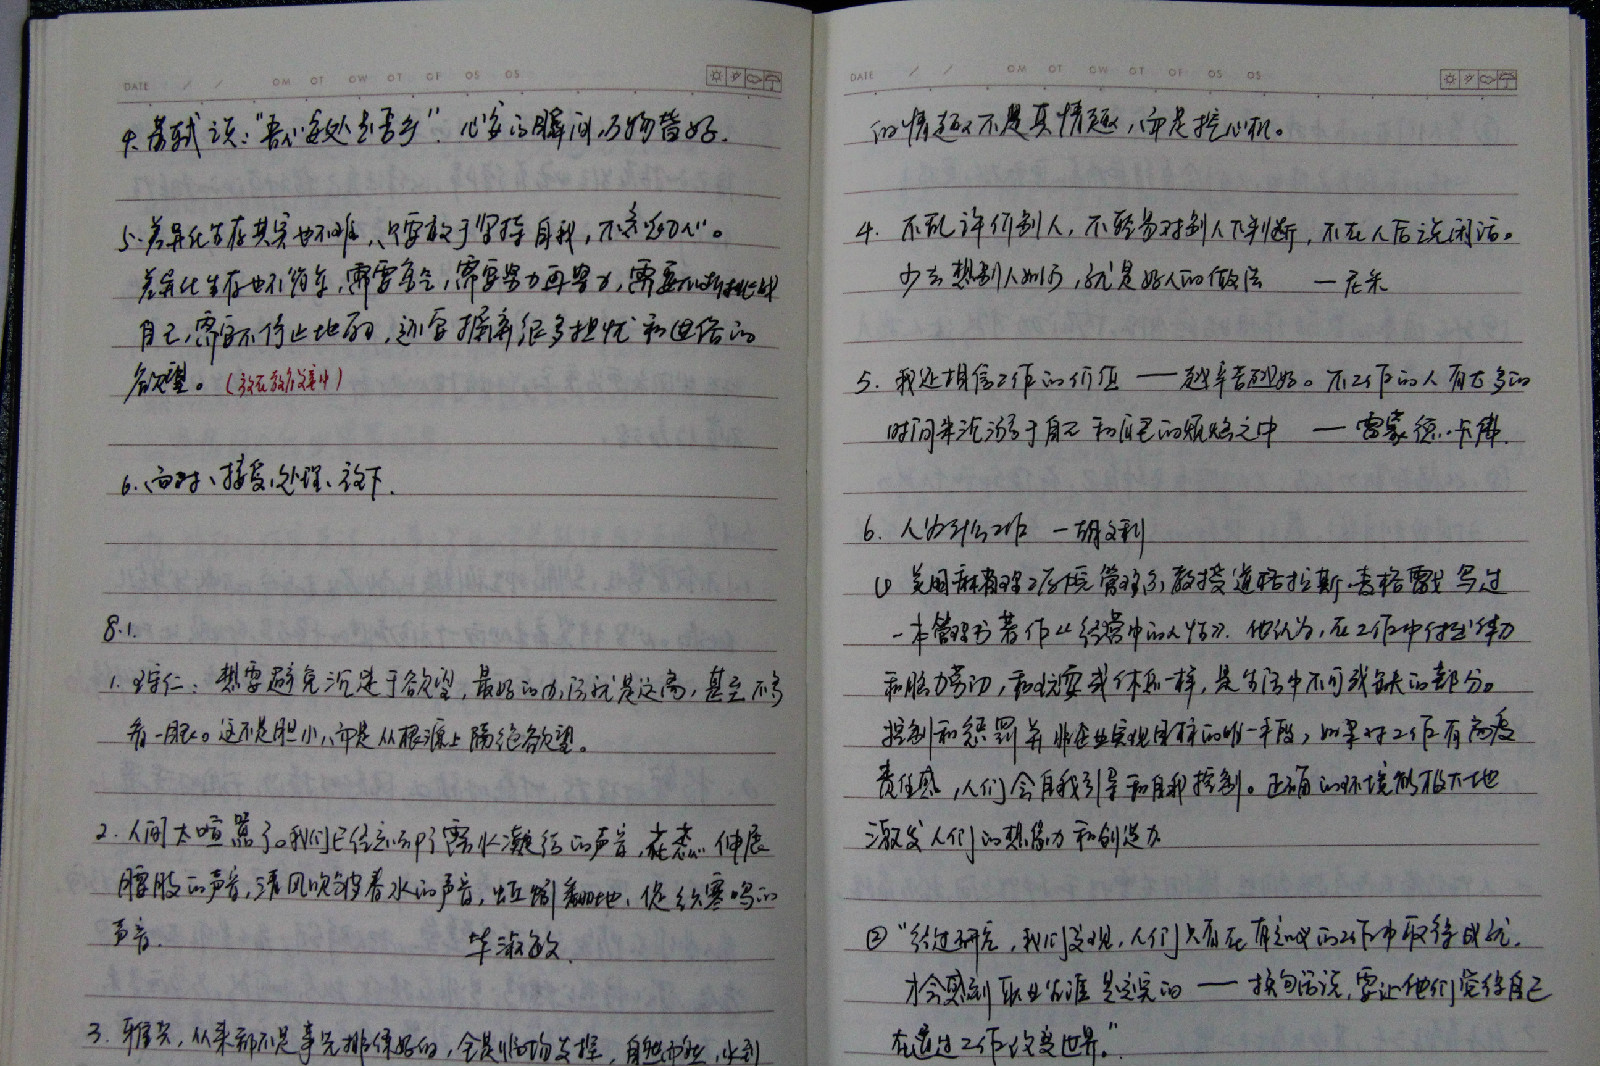 DATE / / OM OT OW OT OF OS OS
4. 苏轼说：“吾心安处是吾乡”. 心安的瞬间，万物皆好.
5. 差异化生存其实也不难，只需敢于坚持自我，不忘初心。
差异化生存也不简单，需要学会，需要努力再努力，需要不断挑战
自己，需要不停止地 ，还要摒弃很多担忧和世俗的
欲望。
6. 面对、接受、处理、放下.
8.1.
1. 王守仁：想要避免沉迷于欲望，最好的办法就是远离，甚至不多
看一眼。这不是胆小，而是从根源上隔绝欲望。
2. 人间太喧嚣了。我们已经忘了露水凝结的声音，花蕊伸展
腰肢的声音，清风吹皱春水的声音，蚯蚓翻地、促织寒鸣的
声音. 毕淑敏.
3. 雅兴，从来都不是事先排练好的，全是临场发挥，自然而然，水到
DATE / / OM OT OW OT OF OS OS
的情趣不是真情趣，而是挖心机。
4. 不乱评价别人，不轻易对别人下判断，不在人后说闲话。
少去想别人如何，就是好人的做法 — 尼采
5. 我还相信工作的价值 —— 越辛苦越好。不工作的人有太多的
时间来沉溺于自己和自己的烦恼之中 — 雷蒙德·卡佛.
6. 人为什么工作 —胡文利
① 美国麻省理工学院管理系教授道格拉斯·麦格雷戈写过
一本管理书著作《经营中的人性》. 他认为，在工作中付出体力
和脑力劳动，和玩耍或休息一样，是生活中不可或缺的部分。
控制和惩罚并非企业实现目标的唯一手段，如果对工作有高度
责任感，人们会自我引导和自我控制。正确的环境能极大地
激发人们的想象力和创造力
② “经过研究，我们发现，人们只有在有意义的工作中取得成就，
才会感到职业生涯是完美的 —— 换句话说，要让他们觉得自己
在通过工作改变世界。”